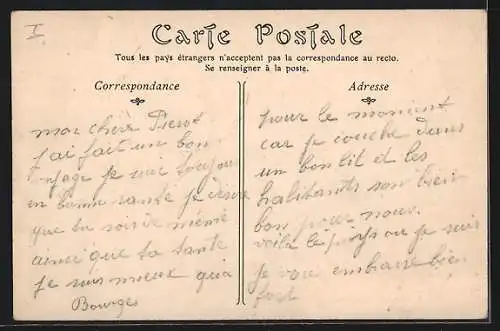 I
Carte Postale
Tous les pays étrangers n'acceptent pas la correspondance au recto.
Se renseigner à la poste.
Correspondance
mon cher Pierot
j'ai fait un bon
voyage je suis toujour
en bonne santé je désire
que ta soirie même
ainci que ta santé
je suis mieux qu'a
Bourges
Adresse
pour le moment
car je couche dans
un bon lit et les
habitants son bien
bon pour nous.
voila le pays ou je suis
je vous embrasse bien
fort